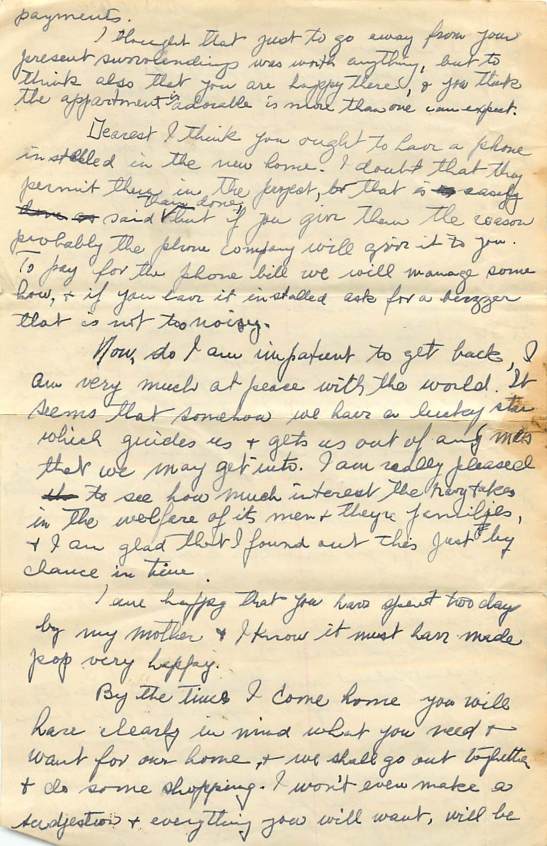 payments.
I thought that just to go away from your
present surrondings was worth anything, but to
think also that you are happy there, & you think
the appartment is adorable is more than one can expect.
Dearest I think you ought to have a phone
installed in the new home. I doubt that they
permit them in the project, but that is easily
said than done, but if you give them the reason
probably the phone company will give it to you.
To pay for the phone bill we will manage some
how, & if you have it installed ask for a buzzer
that is not too noisy.
Now, do I am impatient to get back, I
am very much at peace with the world. It
seems that somehow we have a luckey star
which guides us & gets us out of any mess
that we may get into. I am really pleased
to see how much interest the navy takes
in the welfare of its men & theyre families,
& I am glad that I found out this just by
chance in time.
I am happy that you have spent two day
by my mother & I know it must have made
pop very happy.
By the time I come home you will
have clearly in mind what you need &
want for our home, & we shall go out together
& do some shopping. I won't even make a
sudjestion & everything you will want, will be